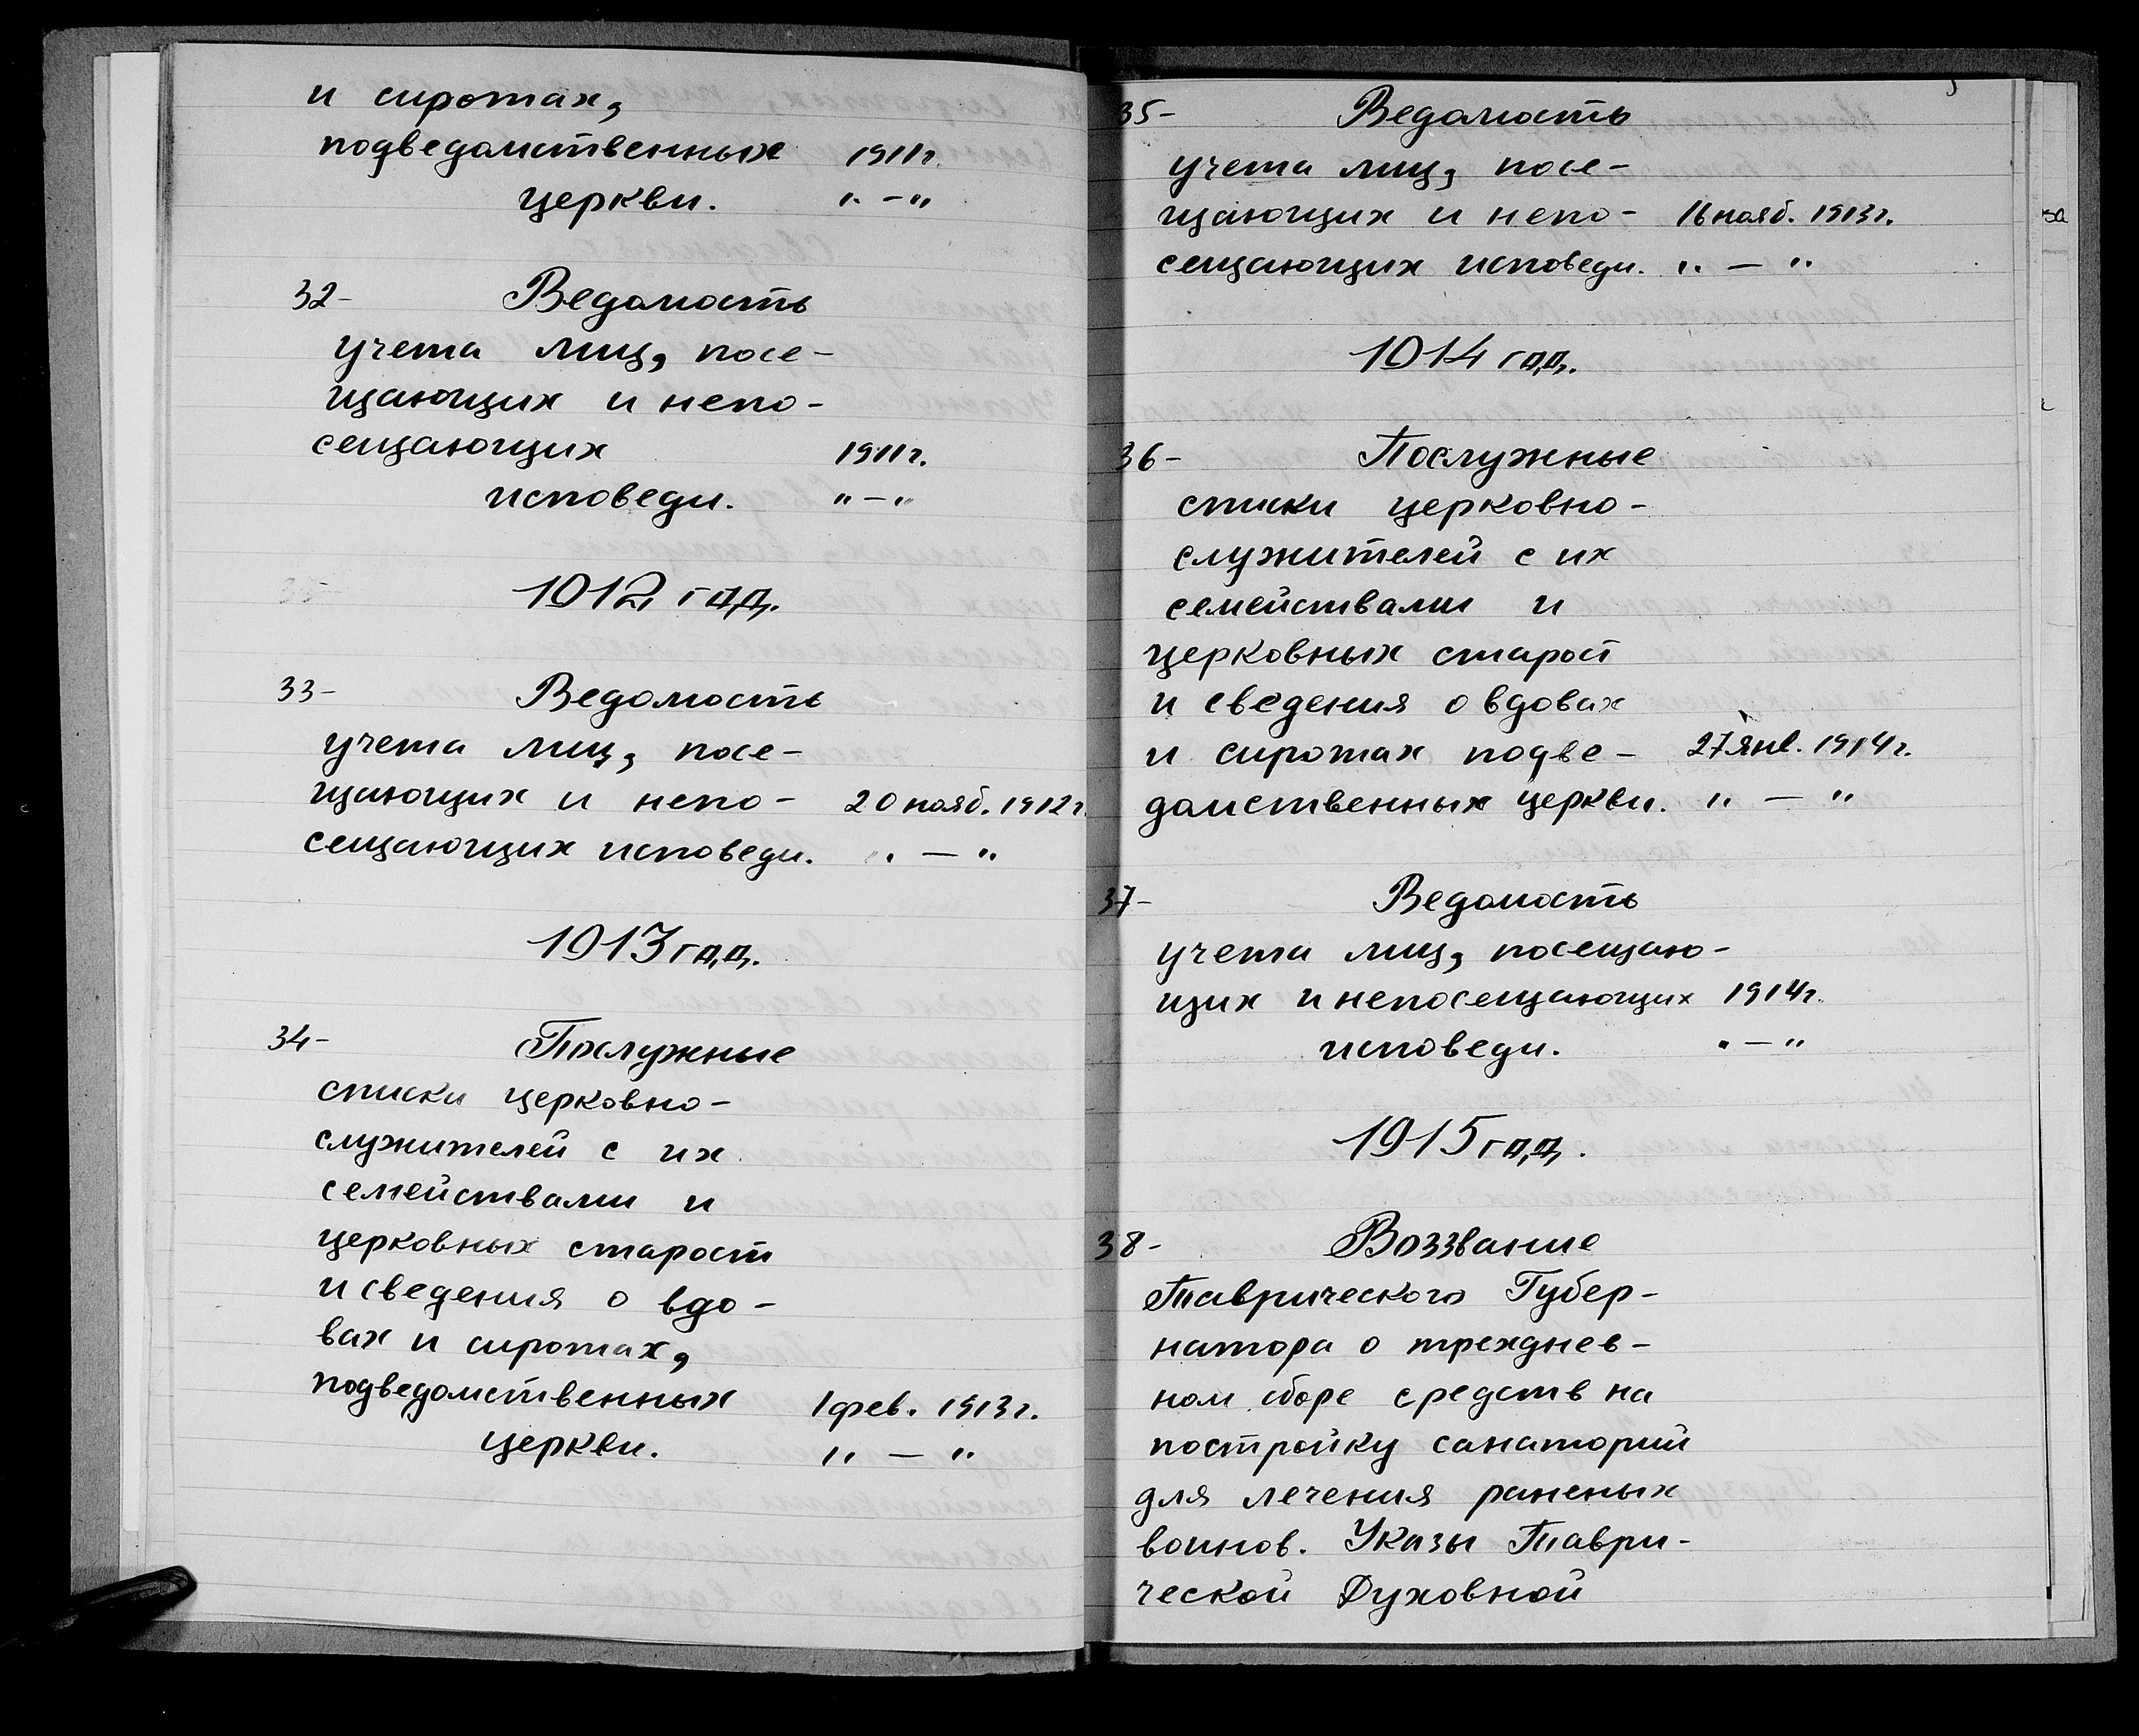 и сиротах,
подведомственных 1911г.
церкви. " - "
32- Ведомость
учета лиц, посе-
щающих и непо-
сещающих 1911г.
исповеди. " - "
1912 год.
33- Ведомость
учета лиц, посе-
щающих и непо- 20 нояб. 1912г.
сещающих исповеди. " - "
1913 год.
34- Послужные
списки церковно-
служителей с их
семействами и
церковных старост
и сведения о вдо-
вах и сиротах,
подведомственных 1 фев. 1913г.
церкви. " - "
35- Ведомость
учета лиц, посе-
щающих и непо- 16 нояб. 1913г.
сещающих исповеди. " - "
1914 год.
36- Послужные
списки церковно-
служителей с их
семействами и
церковных старост
и сведения о вдовах
и сиротах подве- 27 янв. 1914г.
домственных церкви. " - "
37- Ведомость
учета лиц, посещаю-
щих и непосещающих 1914г.
исповеди. " - "
1915 год.
38- Воззвание
Таврического Губер-
натора о трехднев-
ном сборе средств на
постройку санаторий
для лечения раненых
воинов. Указы Таври-
ческой Духовной